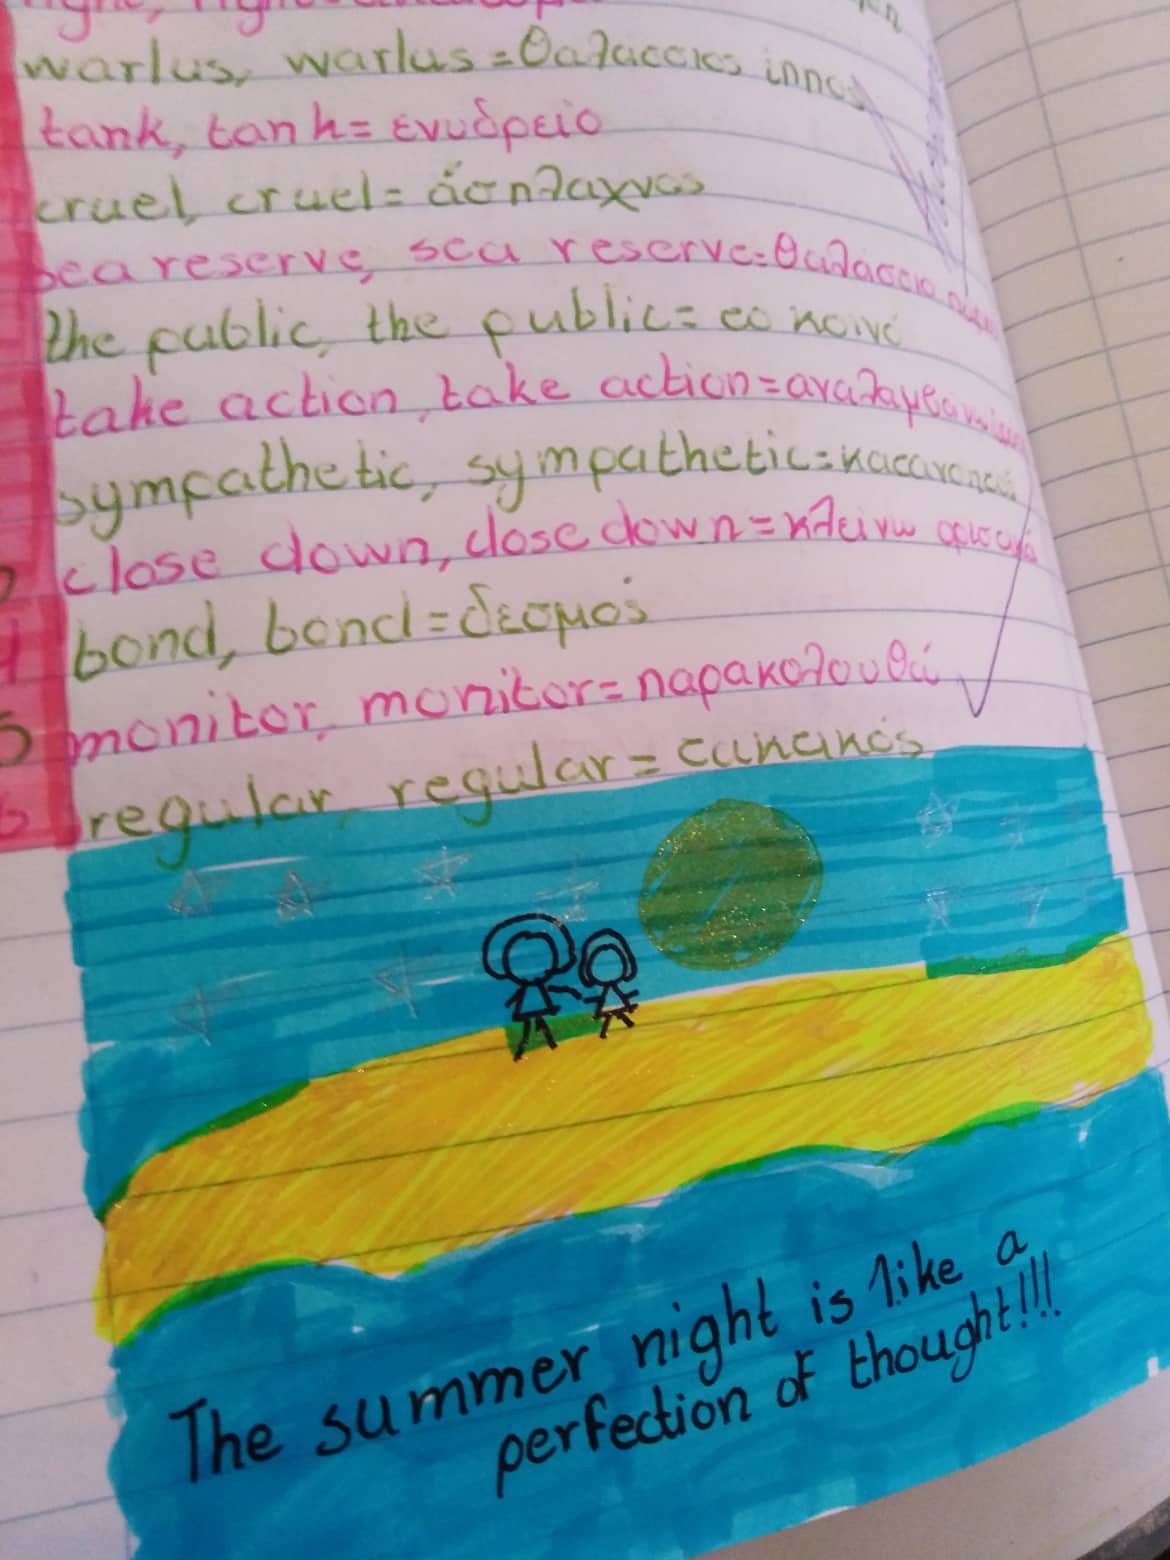 warlus, warlus = θαλάσσιος ίππος
tank, tank = ενυδρείο
cruel, cruel = άσπλαχνος
sea reserve, sea reserve = θαλάσσιο
the public, the public = το κοινό
take action, take action = αναλαμβάνω
sympathetic, sympathetic = κατανοητικός
close down, close down = κλείνω οριστικά
bond, bond = δεσμός
monitor, monitor = παρακολουθώ
5
regular, regular = τακτικός
6
The summer night is like a
perfection of thought!!!